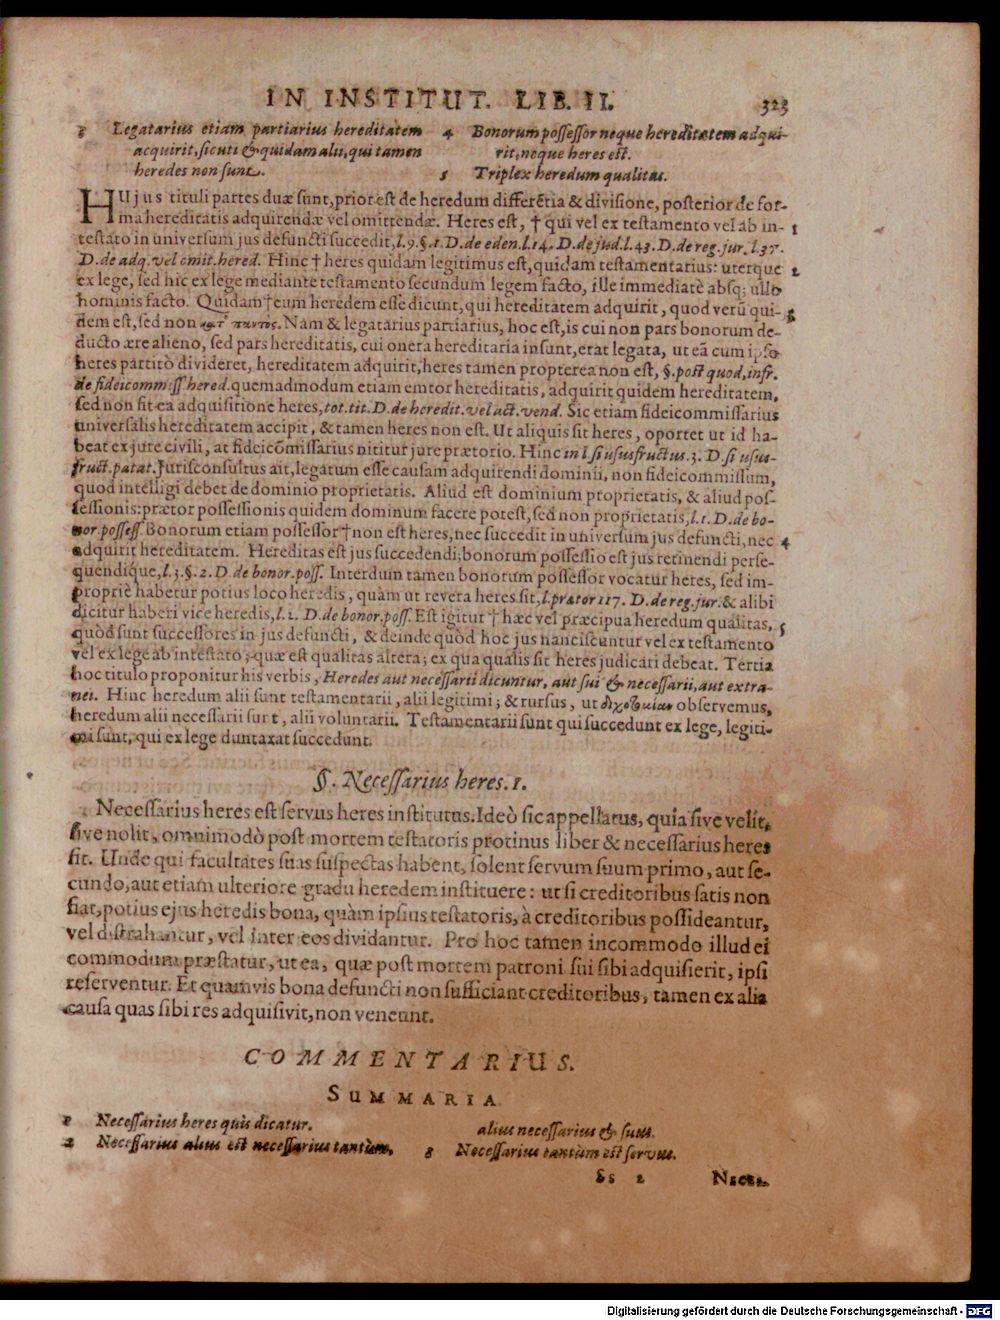 IN INSTITUT. LIB. II. 323
3 Legatarius etiam partiarius hereditatem
acquirit, sicuti & quidam alii, qui tamen
heredes non sunt.
4 Bonorum possessor neque hereditatem adqui-
rit, neque heres est.
5 Triplex heredum qualitas.
HUjus tituli partes duæ sunt, prior est de heredum differẽtia & divisione, posterior de for-
ma hereditatis adquirendæ vel omittendæ. Heres est, † qui vel ex testamento vel ab in- 1
testato in universum jus defuncti succedit, l.9.§.1.D.de eden.l.14.D.de jud.l.43.D.de reg.jur.l.37.
D.de adq.vel omit.hered. Hinc † heres quidam legitimus est, quidam testamentarius: uterque 2
ex lege, sed hic ex lege mediante testamento secundum legem facto, ille immediatè absq; ullo
hominis facto. Quidam † eum heredem esse dicunt, qui hereditatem adquirit, quod verũ qui- 3
dem est, sed non παντὸς. Nam & legatarius partiarius, hoc est, is cui non pars bonorum de-
ducto ære alieno, sed pars hereditatis, cui onera hereditaria insunt, erat legata, ut eã cum ipso
heres partitò divideret, hereditatem adquirit, heres tamen propterea non est, §.post quod, infr.
de fideicomm.ss hered. quemadmodum etiam emtor hereditatis, adquirit quidem hereditatem,
sed non fit ea adquisitione heres, tot.tit.D.de heredit.vel act.vend. Sic etiam fideicommissarius
universalis hereditatem accipit, & tamen heres non est. Ut aliquis sit heres, oportet ut id ha-
beat ex jure civili, at fideicõmissarius nititur jure prætorio. Hinc in l.si ususfructus.3. D.si usus-
fruct.patat. Jurisconsultus ait, legatum esse causam adquirendi dominii, non fideicommissum,
quod intelligi debet de dominio proprietatis. Aliud est dominium proprietatis, & aliud pos-
sessionis: prætor possessionis quidem dominum facere potest, sed non proprietatis, l.1.D.de bo-
nor.possess. Bonorum etiam possessor † non est heres, nec succedit in universum jus defuncti, nec 4
adquirit hereditatem. Hereditas est jus succedendi; bonorum possessio est jus retinendi perse-
quendique, l.3.§.2.D.de bonor.poss. Interdum tamen bonorum possessor vocatur heres, sed im-
propriè habetur potius loco heredis, quàm ut revera heres sit, l.prætor 117. D.de reg.jur. & alibi
dicitur haberi vice heredis, l.2. D.de bonor.poss. Est igitur † hæc vel præcipua heredum qualitas, 5
quòd sunt successores in jus defuncti, & deinde quòd hoc jus nanciscuntur vel ex testamento
vel ex lege ab intestato; quæ est qualitas altera; ex qua qualis sit heres judicari debeat. Tertia
hoc titulo proponitur his verbis, Heredes aut necessarii dicuntur, aut sui & necessarii, aut extra-
nei. Hinc heredum alii sunt testamentarii, alii legitimi; & rursus, ut observemus,
heredum alii necessarii sunt, alii voluntarii. Testamentarii sunt qui succedunt ex lege, legiti-
mi sunt, qui ex lege duntaxat succedunt.
§. Necessarius heres. 1.
Necessarius heres est servus heres institutus. Ideò sic appellatus, quia sive velit,
sive nolit, omnimodò post mortem testatoris protinus liber & necessarius heres
fit. Unde qui facultates suas suspectas habent, solent servum suum primo, aut se-
cundo, aut etiam ulteriore gradu heredem instituere: ut si creditoribus satis non
fiat, potius ejus heredis bona, quàm ipsius testatoris, à creditoribus possideantur,
vel distrahantur, vel inter eos dividantur. Pro hoc tamen incommodo illud ei
commodum præstatur, ut ea, quæ post mortem patroni sui sibi adquisierit, ipsi
reserventur. Et quamvis bona defuncti non sufficiant creditoribus, tamen ex alia
causa quas sibi res adquisivit, non veneunt.
COMMENTARIUS.
SUMMARIA
1 Necessarius heres quis dicatur.
2 Necessarius alius est necessarius tantùm,
alius necessarius & suus.
3 Necessarius tantùm est servus.
Ss 2 Neces-
Digitalisierung gefördert durch die Deutsche Forschungsgemeinschaft - DFG